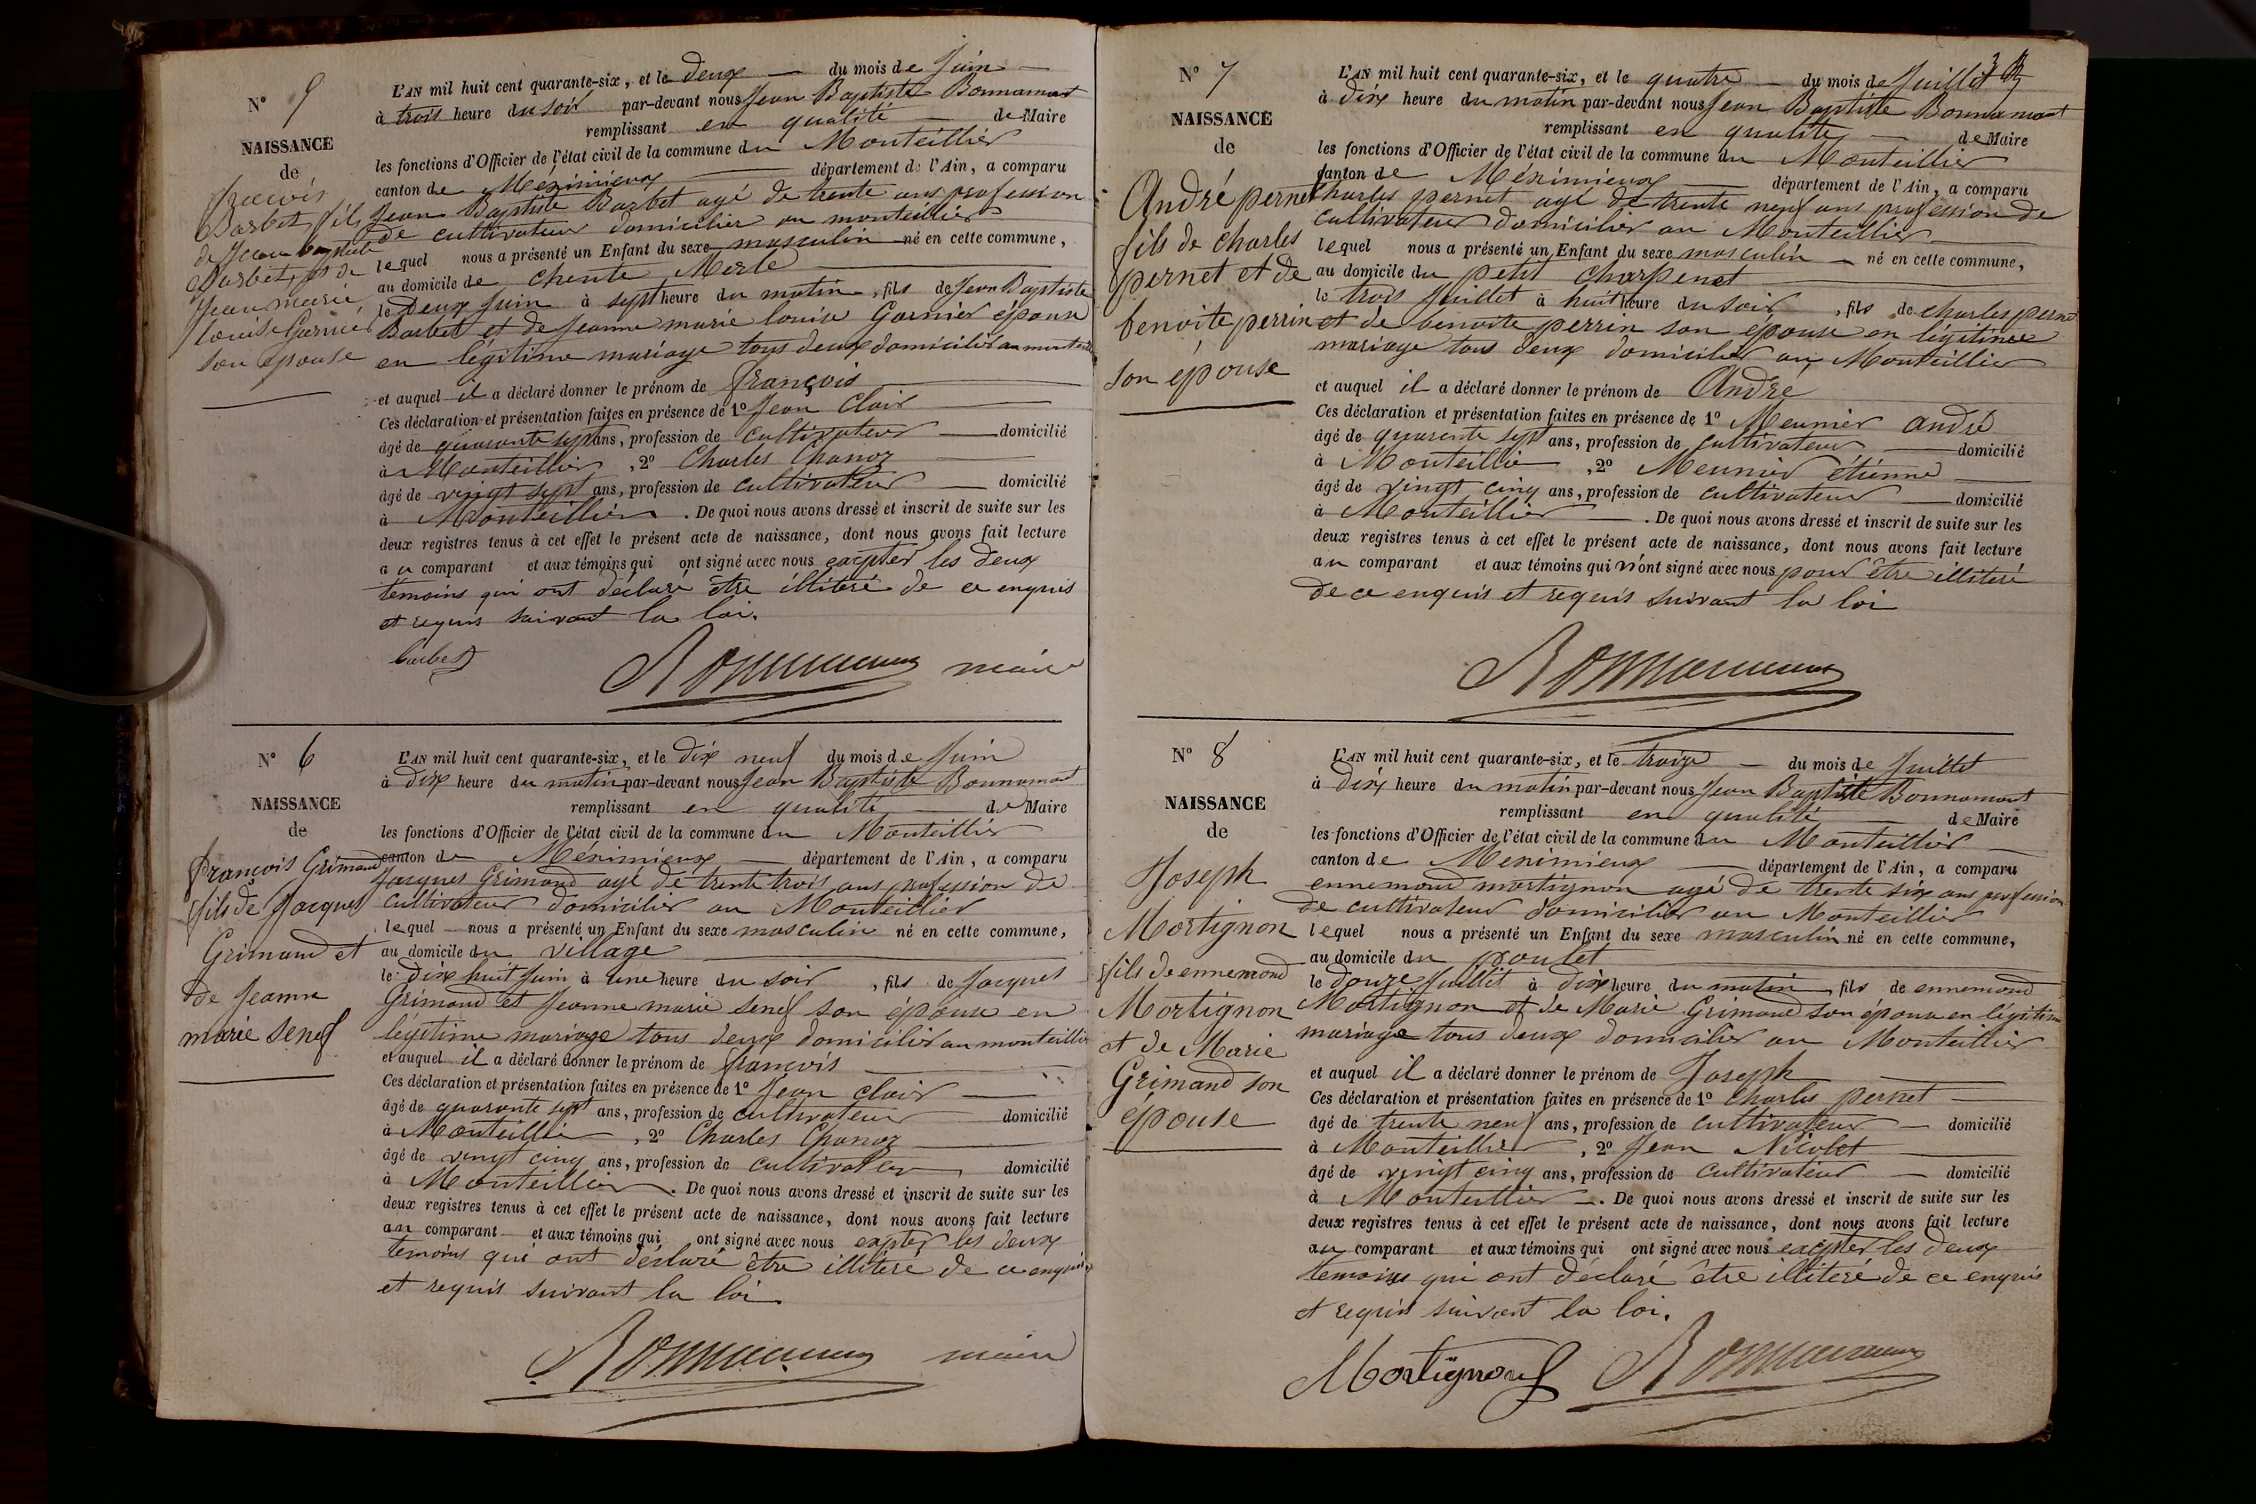 N° 5
NAISSANCE
de
françois
Barbet fils
de Jean baptiste
Barbet et de
Jeanne marie
louise Garnier
son épouse
L'AN mil huit cent quarante-six, et le deux du mois de Juin
à trois heure du soir par-devant nous Jean Baptiste Bonnamant
remplissant en qualité de Maire
les fonctions d'Officier de l'état civil de la commune du Montellier
canton de Méximieux département de l'Ain, a comparu
Jean Baptiste Barbet agé de trente ans profession
de cultivateur domicilier au monteillier
lequel nous a présenté un Enfant du sexe masculin né en cette commune,
au domicile de chante Merle
le Deux Juin à sept heure du matin, fils de Jean Baptiste
Barbet et de Jeanne marie louise Garnier épouse
en légitime mariage tous deux domicilier au monteillier
et auquel il a déclaré donner le prénom de françois
Ces déclaration et présentation faites en présence de 1° Jean Clair
âgé de quarante sept ans, profession de cultivateur domicilié
à Monteillier, 2° Charles Chanoz
âgé de vingt sept ans, profession de cultivateur domicilié
à Monteillier. De quoi nous avons dressé et inscrit de suite sur les
deux registres tenus à cet effet le présent acte de naissance, dont nous avons fait lecture
au comparant et aux témoins qui ont signé avec nous excepter les deux
temoins qui ont déclaré être illitéré de ce enquis
et requis suivant la loi.
barbet Bonnamant maire
N° 6
NAISSANCE
de
françois Grimand
fils de Jacques
Grimand et
de Jeanne
marie Senef
L'AN mil huit cent quarante-six, et le dix neuf du mois de Juin
à dix heure du matin par-devant nous Jean Baptiste Bonnamant
remplissant en qualité de Maire
les fonctions d'Officier de l'état civil de la commune du Monteillier
canton de Méximieux département de l'Ain, a comparu
Jacques Grimand agé de trente trois ans profession de
cultivateur domicilier au Monteillier
lequel nous a présenté un Enfant du sexe masculin né en cette commune,
au domicile du village
le dix huit Juin à une heure du soir, fils de Jacques
Grimand et Jeanne marie senef son épouse en
légitime mariage tous deux domicilier au monteillier
et auquel il a déclaré donner le prénom de françois
Ces déclaration et présentation faites en présence de 1° Jean clair
âgé de quarante sept ans, profession de cultivateur domicilié
à Monteillier, 2° Charles Chanoz
âgé de vingt cinq ans, profession de cultivateur domicilié
à Monteillier. De quoi nous avons dressé et inscrit de suite sur les
deux registres tenus à cet effet le présent acte de naissance, dont nous avons fait lecture
au comparant et aux témoins qui ont signé avec nous expter les deux
temoins qui ont déclaré être illitéré de ce enquis
et requis suivant la loi
Bonnamant maire
N° 7
NAISSANCE
de
André pernet
fils de charles
pernet et de
benoite perrin
son épouse
L'AN mil huit cent quarante-six, et le quatre du mois de Juillet
à dix heure du matin par-devant nous Jean Baptiste Bonnamant
remplissant en qualité de Maire
les fonctions d'Officier de l'état civil de la commune du Monteillier
canton de Méximieux département de l'Ain, a comparu
Charles pernet agé de trente neuf ans profession de
cultivateur domicilier au Monteillier
lequel nous a présenté un Enfant du sexe masculin né en cette commune,
au domicile du petit charpenet
le trois Juillet à huit heure du soir, fils de charles pernet
et de benoite perrin son épouse en légitime
mariage tous deux domicilier au Monteillier
et auquel il a déclaré donner le prénom de André
Ces déclaration et présentation faites en présence de 1° Meunier andré
âgé de quarente sept ans, profession de cultivateur domicilié
à Monteillier, 2° Meunier étienne
âgé de vingt cinq ans, profession de cultivateur domicilié
à Monteillier. De quoi nous avons dressé et inscrit de suite sur les
deux registres tenus à cet effet le présent acte de naissance, dont nous avons fait lecture
au comparant et aux témoins qui n'ont signé avec nous pour être illiteré
de ce enquis et requis suivant la loi
Bonnamant
N° 8
NAISSANCE
de
Joseph
Mortignon
fils de ennemond
Mortignon
et de Marie
Grimand son
épouse
L'AN mil huit cent quarante-six, et le treize du mois de Juillet
à dix heure du matin par-devant nous Jean Baptiste Bonnamant
remplissant en qualité de Maire
les fonctions d'Officier de l'état civil de la commune du Monteillier
canton de Meximieux département de l'Ain, a comparu
ennemond mortignon agé de trente six ans profession
de cultivateur domicilier au Monteillier
lequel nous a présenté un Enfant du sexe masculin né en cette commune,
au domicile du poulet
le douze Juillet à dix heure du matin, fils de ennemond
Mortignon et de Marie Grimand son épouse en légitime
mariage tous deux domicilier au Monteillier
et auquel il a déclaré donner le prénom de Joseph
Ces déclaration et présentation faites en présence de 1° Charles pernet
âgé de trente neuf ans, profession de cultivateur domicilié
à Monteillier, 2° Jean Nicolet
âgé de vingt cinq ans, profession de cultivateur domicilié
à Monteillier. De quoi nous avons dressé et inscrit de suite sur les
deux registres tenus à cet effet le présent acte de naissance, dont nous avons fait lecture
au comparant et aux témoins qui ont signé avec nous excepter les deux
temoins qui ont déclaré être illiteré de ce enquis
et requis suivant la loi.
Mortignon Bonnamant